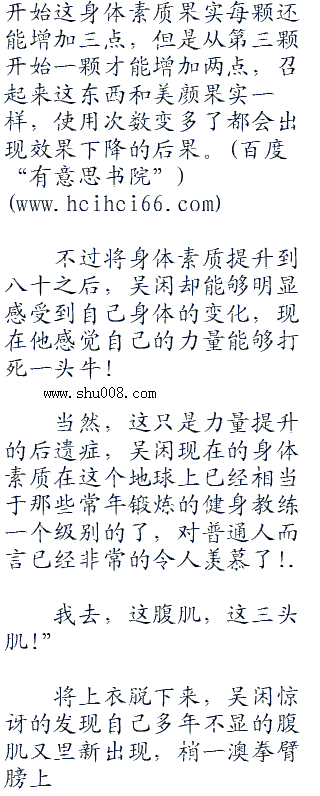 开始这身体素质果实每颗还
能增加三点，但是从第三颗
开始一颗才能增加两点，召
起来这东西和美颜果实一
样，使用次数变多了都会出
现效果下降的后果。(百度
“有意思书院”)
(www.hcihci66.com)
不过将身体素质提升到
八十之后，吴闲却能够明显
感受到自己身体的变化，现
在他感觉自己的力量能够打
死一头牛！
www.shu008.com
当然，这只是力量提升
的后遗症，吴闲现在的身体
素质在这个地球上已经相当
于那些常年锻炼的健身教练
一个级别的了，对普通人而
言已经非常的令人羡慕了！.
我去，这腹肌，这三头
肌！”
将上衣脱下来，吴闲惊
讶的发现自己多年不显的腹
肌又里新出现，梢一澳拳臂
膀上